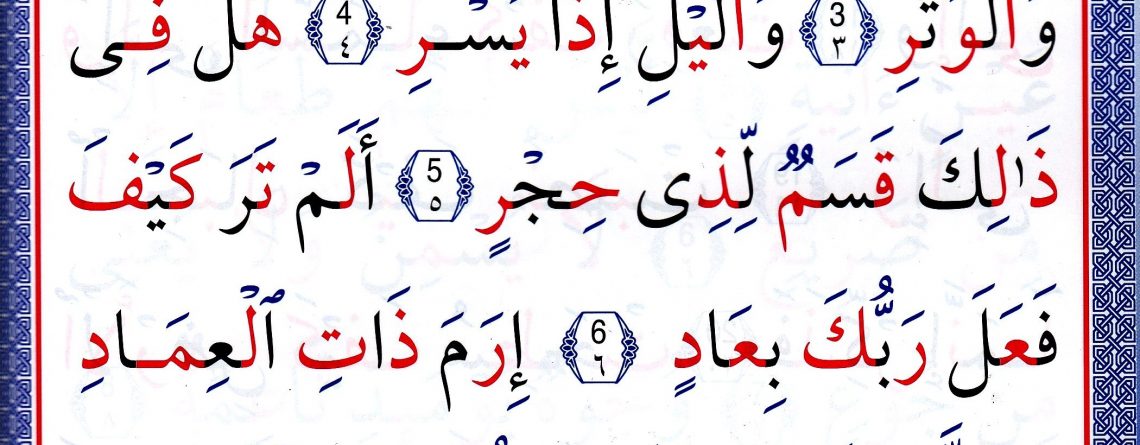 وَالْوَتْرِ 3 ٣ وَالَّيْلِ إِذَا يَسْرِ 4 ٤ هَلْ فِى
ذَٰلِكَ قَسَمٌ لِّذِى حِجْرٍ 5 ٥ أَلَمْ تَرَ كَيْفَ
فَعَلَ رَبُّكَ بِعَادٍ 6 ٦ إِرَمَ ذَاتِ ٱلْعِمَادِ